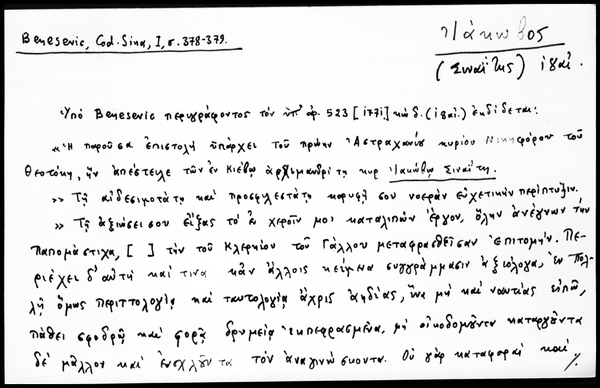 Benesevic, Cod. Sina, I, σ. 378-379.
Ἰάκωβος
(Σιναΐτης) ιηαι.
Ὑπὸ Benesevic περιγράφοντος τὸν ὑπ' ἀρ. 523 [1771] κώδ. (ιηαι.) ἐκδίδεται:
«Ἡ παροῦσα ἐπιστολὴ ὑπάρχει τοῦ πρώην Ἀστραχανίου κυρίου Νικηφόρου τοῦ
Θεοτόκη, ἣν ἀπέστειλε τῶν ἐν Κιέβῳ ἀρχιμανδρίτῃ κυρ Ἰακώβῳ Σιναΐτῃ.
» Τῇ αἰδεσιμοτάτῃ καὶ προσφιλεστάτῃ κορυφῇ σου νοερὰν εὐχετικὴν περίπτυξιν.
» Τῇ ἀξιώσει σου εἴξας τὸ ἐν χεροῖν μοι καταλιπὼν ἔργον, ὅλην ἀνέγνων τὴν
Παπομάστιχα, [ ] τὴν τοῦ Κλερικίου τοῦ Γάλλου μεταφρασθεῖσαν ἐπιτομήν. Πε-
ριέχει δ' αὐτὴ καί τινα κἂν ἄλλοις κείμενα συγγράμμασιν ἀξιόλογα, ἐν πολ-
λῇ ὅμως περιττολογίᾳ καὶ ταυτολογίᾳ ἄχρις ἀηδίας, ἵνα μὴ καὶ ναυτίας εἴπω,
πάθει σφοδρῷ καὶ φορᾷ δριμείᾳ ἐκπεφρασμένα, μὴ οἰκοδομοῦντα καταργοῦντα
δὲ μᾶλλον καὶ ἐνοχλοῦντα τὸν ἀναγινώσκοντα. Οὐ γὰρ καταφοραὶ καὶ
./.